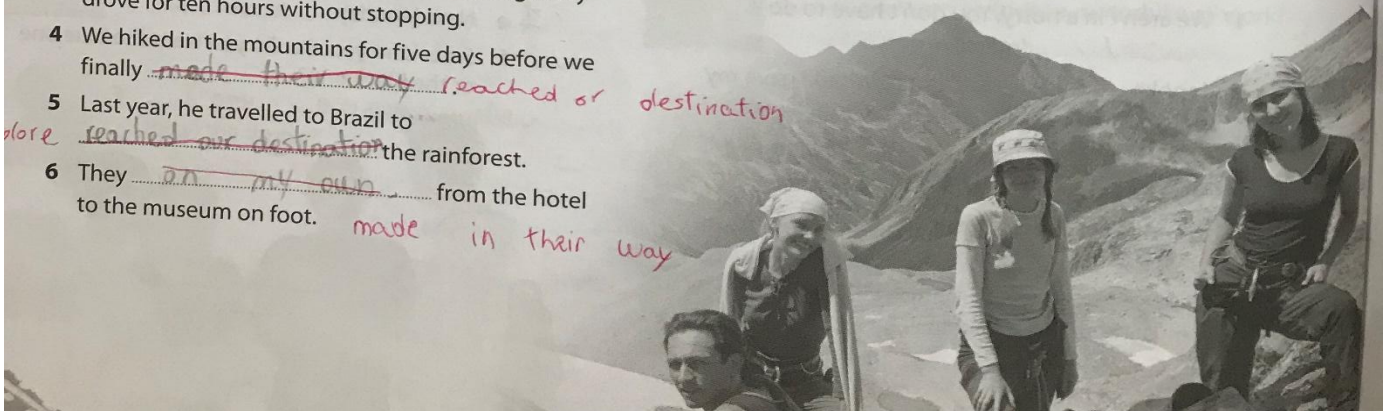 drove for ten hours without stopping.
4 We hiked in the mountains for five days before we
finally made their way reached or destination
5 Last year, he travelled to Brazil to
plore reached our destination the rainforest.
6 They on my own from the hotel
to the museum on foot. made in their way